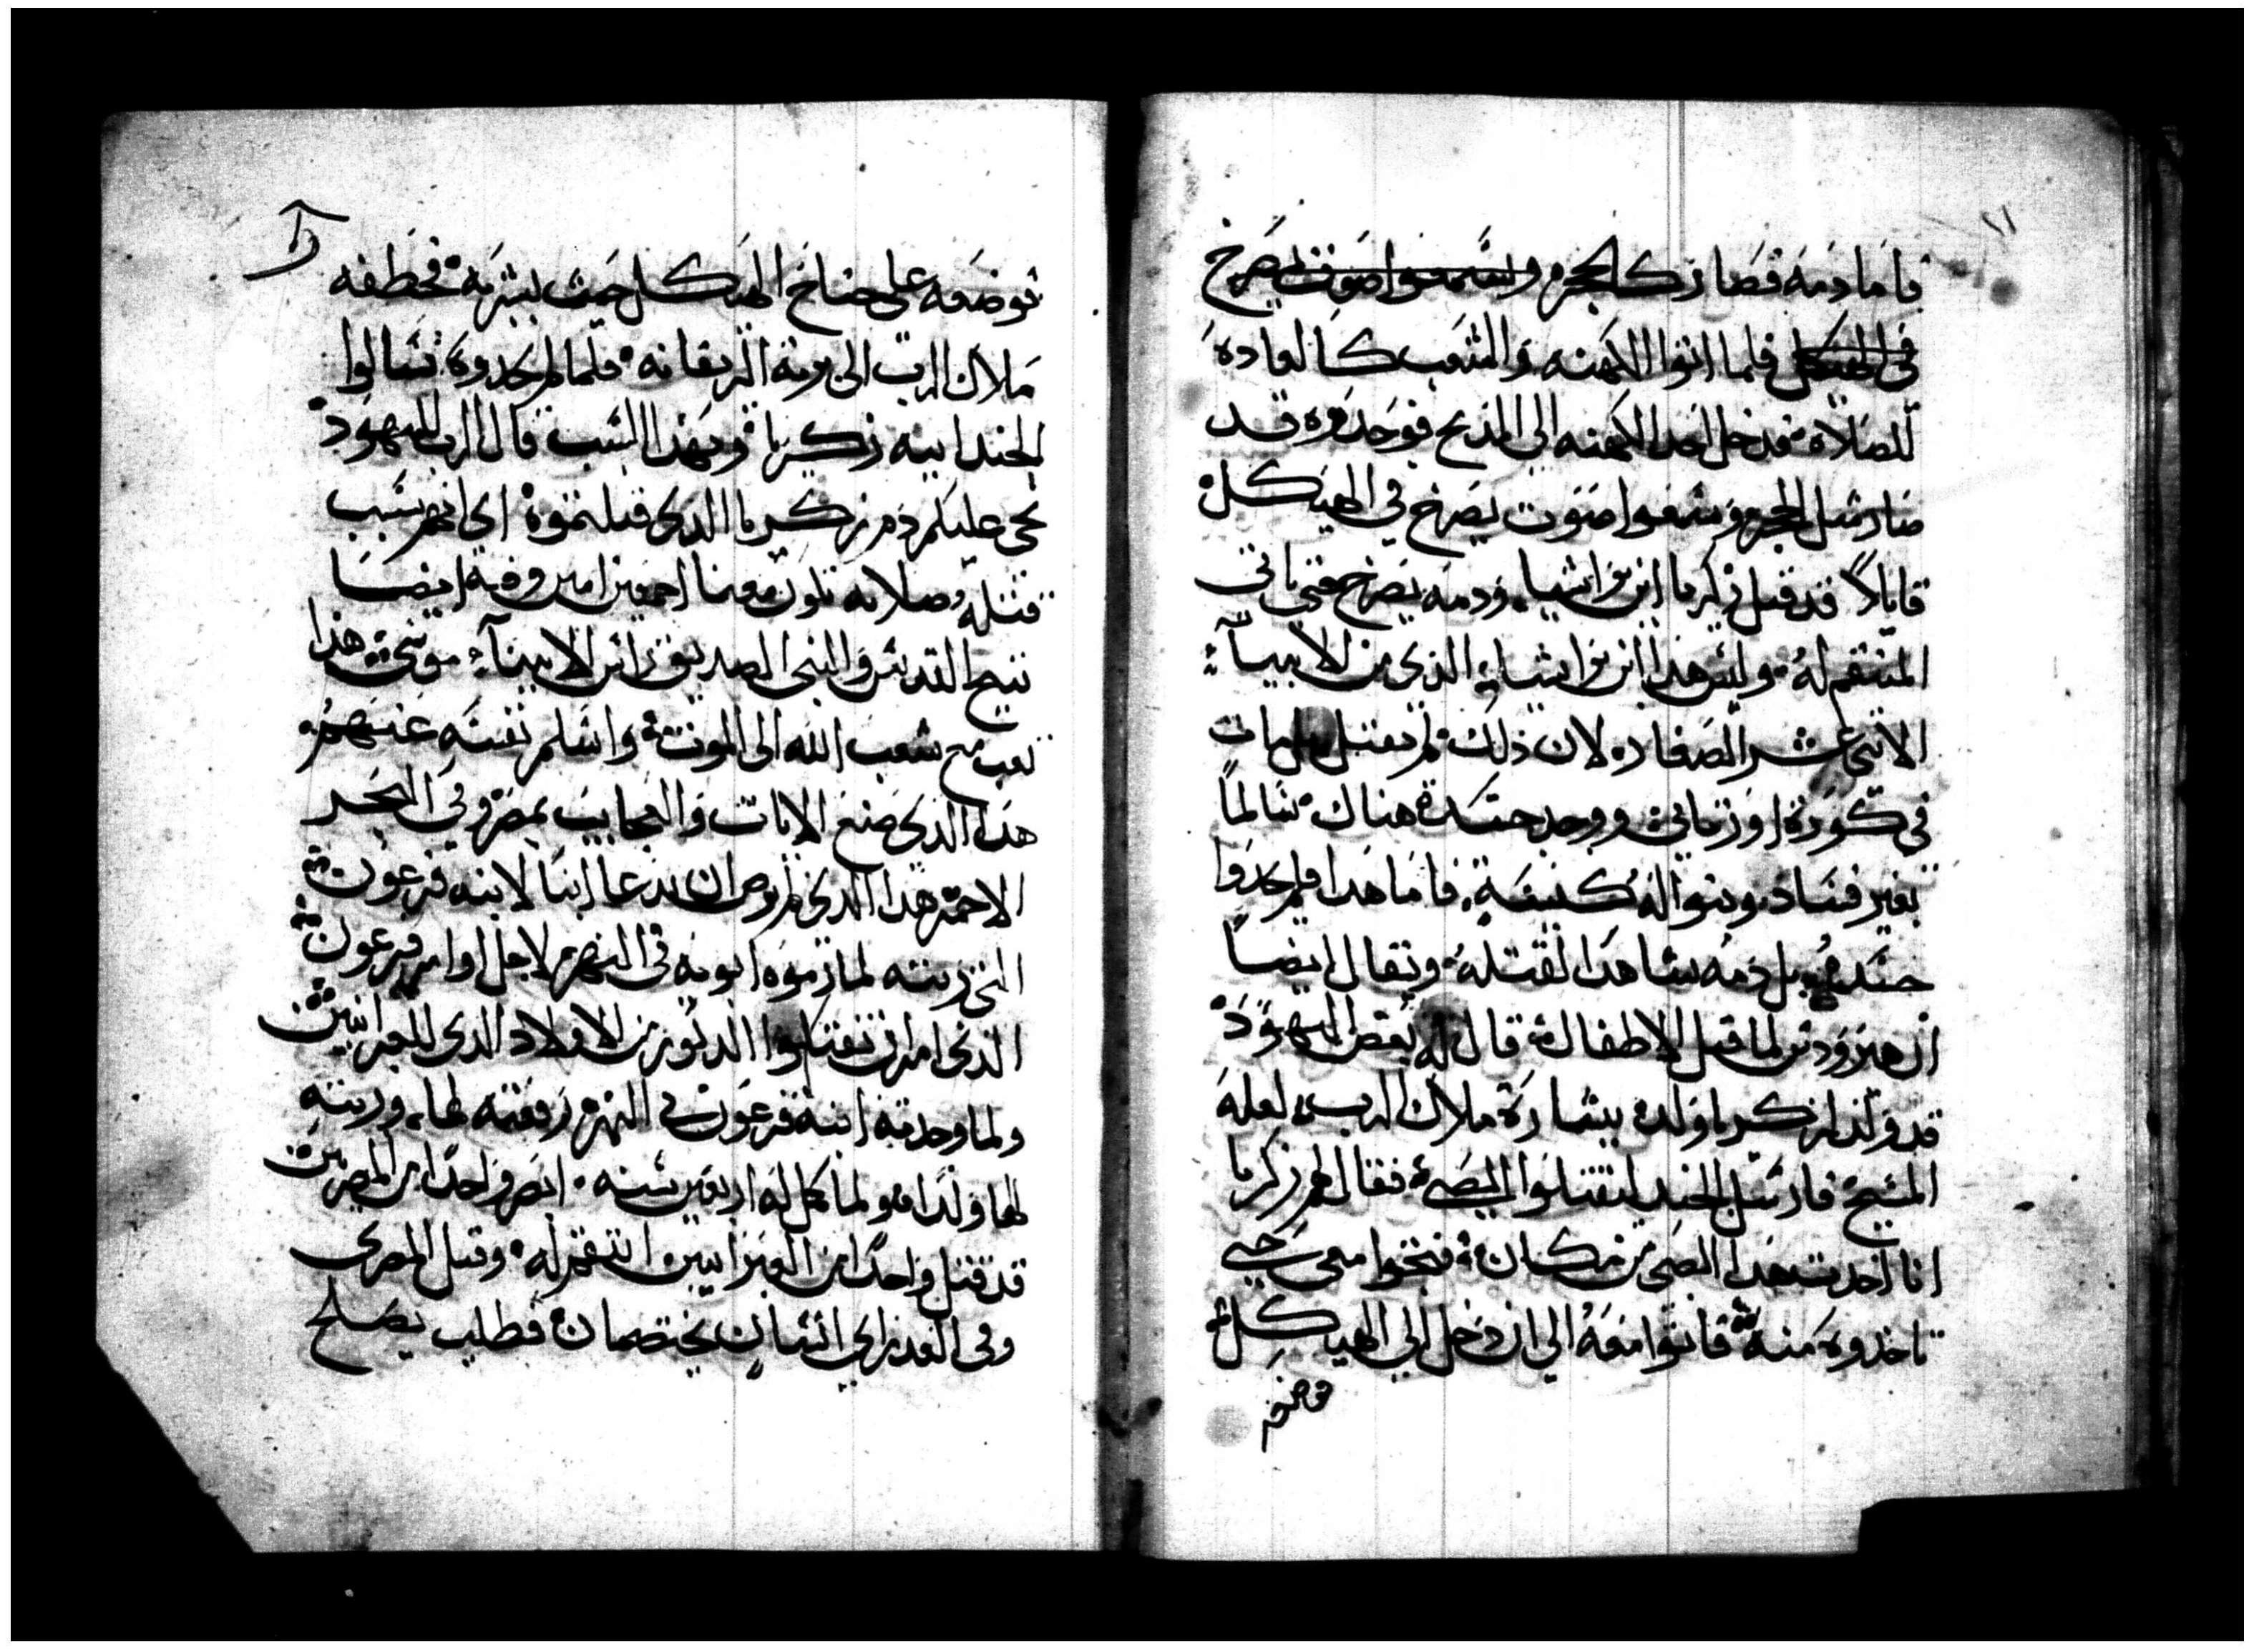 ١١
فاما دمه فصار كالحجر وسمعوا صوت يصرخ
في الهيكل فلما اتوا الكهنه والشعب كالعاده
للصلاه فدخل احد الكهنه الي المذبح فوجدوه قد
صار مثل الحجر وسمعوا صوت يصرخ في الهيكل
قايلاً قد قتل زكريا ابن براشيا ودمه يصرخ حتي ياتي
المنتقم له وليس هذا ابن براشيا الذي من الانبياء
الاثني عشر الصغار لان ذلك لم يقتل بل مات
في كورة اورتاني ووجد جسده هناك سالماً
بغير فساد وبنوا له كنيسة فاما هذا فلم يجدوا
جسده بل دمه شاهدا لقتله ويقال ايضاً
ان هيرودس لما قتل الاطفال قال له بعض اليهود
قد ولد لزكريا ولد ببشارة ملاك الرب لعله
المسيح فارسل الجند ليقتلوا الصبي فقال لهم زكريا
انا اخدت هدا الصبي من مكان فتجوا معي حتي
تاخدوه منه فاتوا معه الي ان دخل الي الهيكل
فوضعه علي جناح الهيكل حيث بشر به فخطفه
ملاك الرب الي برية الزيفانه فلما لم يجدوه قتلوا
الجند ابيه زكريا وبهذا السبب قال الرب لليهود
يجي عليكم دم زكريا الدي قتلتموه اي انهم بسبب
قتله صلاته تكون معنا اجمعين امين وفيه ايضا
تنيح القديس والنبي الصديق راس الانبياء موسي هذا
تعب مع شعب الله الي الموت واسلم نفسه عنهم
هدا الدي صنع الايات والعجايب بمصر وفي البحر
الاحمر هدا الدي لم يرض ان يدعا ابنا لابنه فرعون
التي ربته لما رموه ابويه في النهر لاجل اوامر فرعون
الذي امر ان تقتلوا الدكور من الاولاد الدي للعبرانيين
ولما وجدته ابنة فرعون في النهر رفعته لها وربته
لها ولدا ولما كمل له اربعين سنه ابصر واحدا من المصريين
قد قتل واحدا من العبرانيين انتقم له وقتل المصري
وفي الغد راي اتنان يختصمان فطلب يصلح